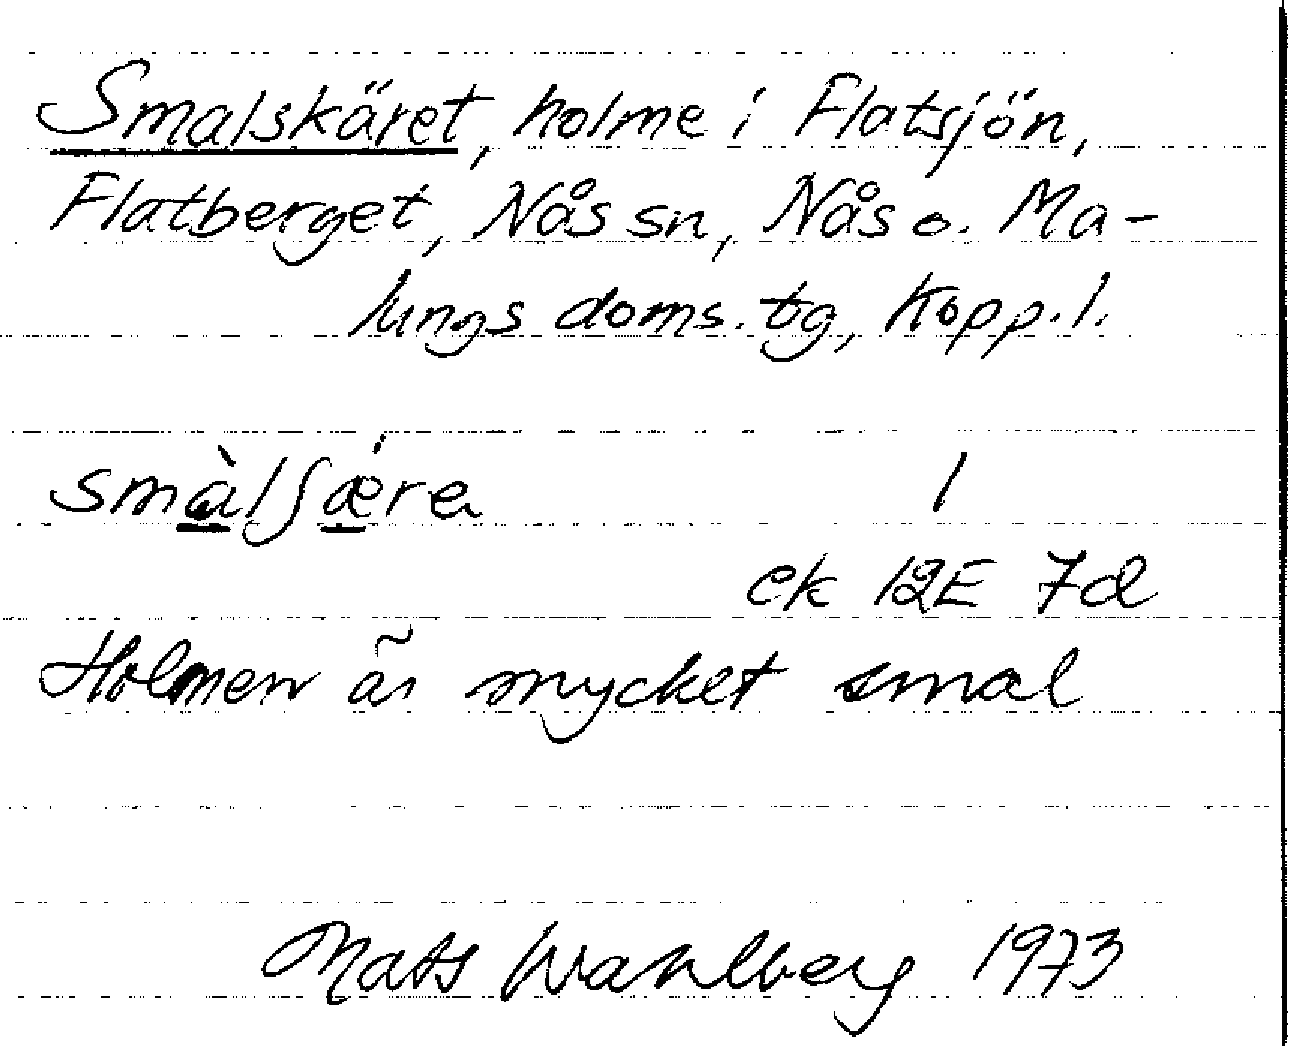 Smalskäret, holme i Flatsjön,
Flatberget, Nås sn, Nås o. Ma-
lungs doms. tg, Kopp. l.
smàlʃǽra 1
ek 12E 7d
Holmen är mycket smal
Mats Wahlberg 1973